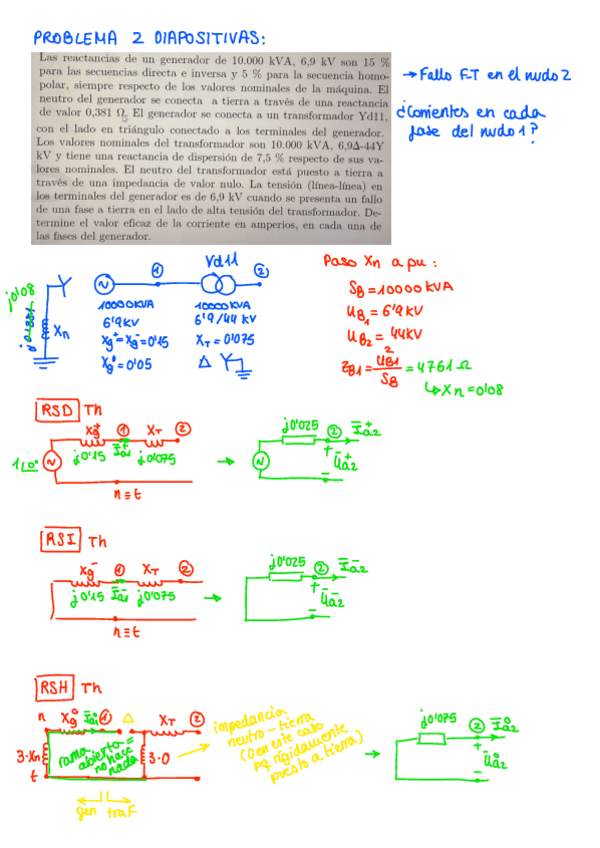 PROBLEMA 2 DIAPOSITIVAS:
Las reactancias de un generador de 10.000 kVA, 6,9 kV son 15 %
para las secuencias directa e inversa y 5 % para la secuencia homo-
polar, siempre respecto de los valores nominales de la máquina. El
neutro del generador se conecta a tierra a través de una reactancia
de valor 0,381 Ω. El generador se conecta a un transformador Yd11,
con el lado en triángulo conectado a los terminales del generador.
Los valores nominales del transformador son 10.000 kVA, 6,9Δ-44Y
kV y tiene una reactancia de dispersión de 7,5 % respecto de sus va-
lores nominales. El neutro del transformador está puesto a tierra a
través de una impedancia de valor nulo. La tensión (línea-línea) en
los terminales del generador es de 6,9 kV cuando se presenta un fallo
de una fase a tierra en el lado de alta tensión del transformador. De-
termine el valor eficaz de la corriente en amperios, en cada una de
las fases del generador.
→ Fallo F-T en el nudo 2
¿Corrientes en cada
fase del nudo 1?
j0'08
j0'381
Xn
① Yd11 ②
10000KVA
6'9KV
Xg⁺=Xg⁻=0'15
Xg⁰=0'05
10000KVA
6'9/44 KV
XT=0'075
Δ Y
Paso Xn a pu:
SB=10000KVA
UB1=6'9KV
UB2=44KV
ZB1=UB1²/SB=4'761Ω
↳Xn=0'08
RSD Th
Xg⁺ ① XT ②
1∠0° j0'15 Ia1⁺ j0'075
n≡t
→
j0'025 ② Ia2⁺
+
Ua2⁺
-
RSI Th
Xg⁻ ① XT ②
j0'15 Ia1⁻ j0'075
n≡t
→
j0'025 ② Ia2⁻
+
Ua2⁻
-
RSH Th
n Xg⁰ Ia1⁰ ① Δ XT ②
3·Xn
t
rama
abierto=
no hace
nada
3·0
gen traf
impedancia
neutro-tierra
(0 en este caso
pq rígidamente
puesto a tierra)
→
j0'075 ② Ia2⁰
+
Ua2⁰
-